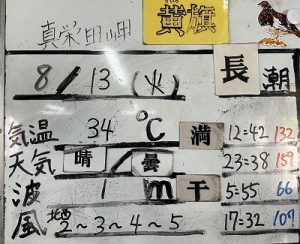 真栄田岬 黄旗
8/13(火) 長潮
気温 34℃ 満 12:42 132
天気 晴/曇 23:38 159
波 1m 干 5:55 66
風 2~3~4~5 17:32 107